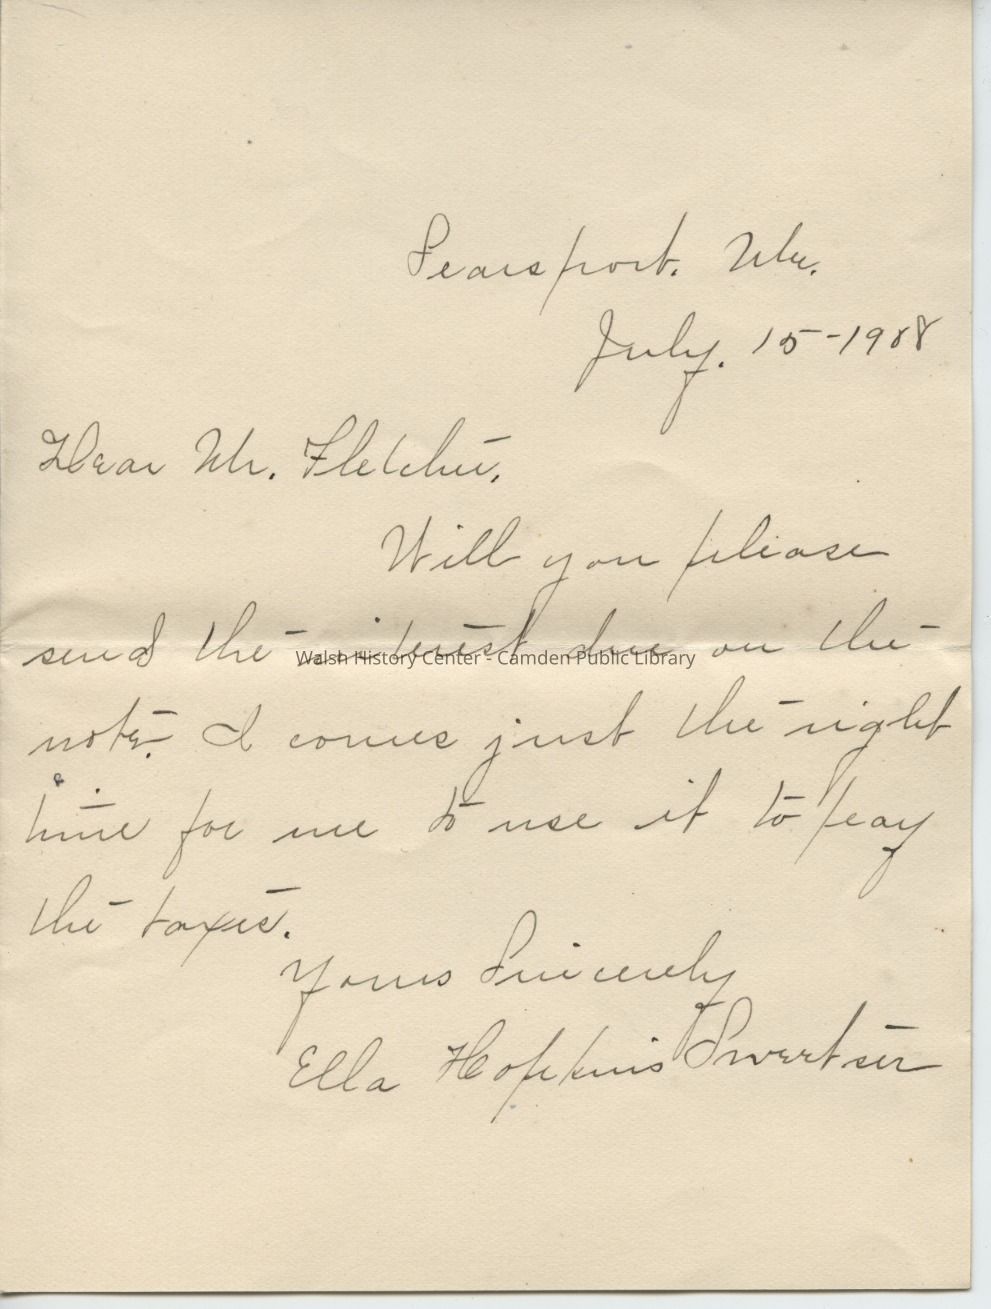 Searsport. Me.
July. 15-1908
Dear Mr. Fletcher,
Will you please
send the interest due on the
Walsh History Center - Camden Public Library
note. I comes just the right
time for me to use it to pay
the taxes.
Yours Sincerely
Ella Hopkins Sweetser